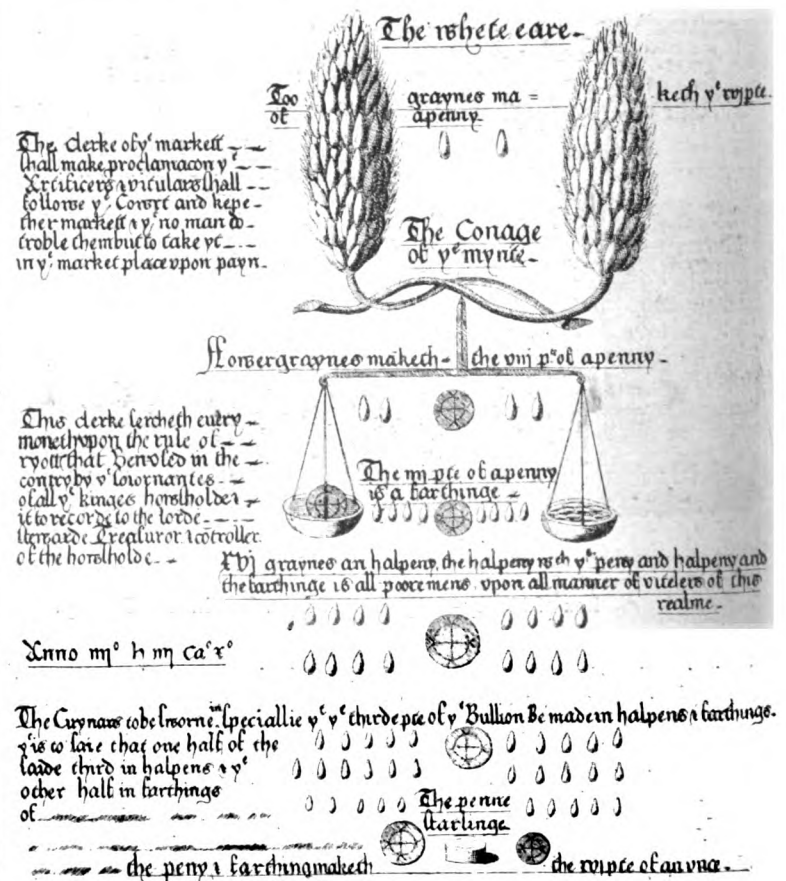 The whete eare
Too graynes ma = keth yᵉ xvj pte
of apenny
The clerke of yᵉ markett
shall make proclamacon yᵗ
Artificers & vitulars shall
followe yᵉ Cowrt and kepe
ther markett & yᵗ no man do
troble them but to take yt
in yᵉ market place vpon payn
The Conage
of yᵉ mynte
ffowergraynes maketh the viij pᵗ of apenny
This clerke sercheth euery
moneth vpon the rule of
that in the
contry by yᵉ
of all yᵉ kinges howsholde &
it to recorde to the lorde
stewarde Treasuror & cōtroller
of the howsholde
The iiij pte of apenny
is a farthinge
xvj graynes an halpeny, the halpeny wᵗʰ yᵉ peny and halpeny and
the farthinge is all poore mens vpon all manner of vitelers of this
realme
Anno h caᵒ xᵒ
The Cuynars to be sworne in speciallie yᵗ yᵉ thirde pte of yᵉ Bullion Be made in halpens & farthings
yᵗ is to saie that one half of the
saide third in halpens & yᵉ
other half in farthings
of
The penne
starlinge
the peny & farthing maketh the xvj pte of an vnce